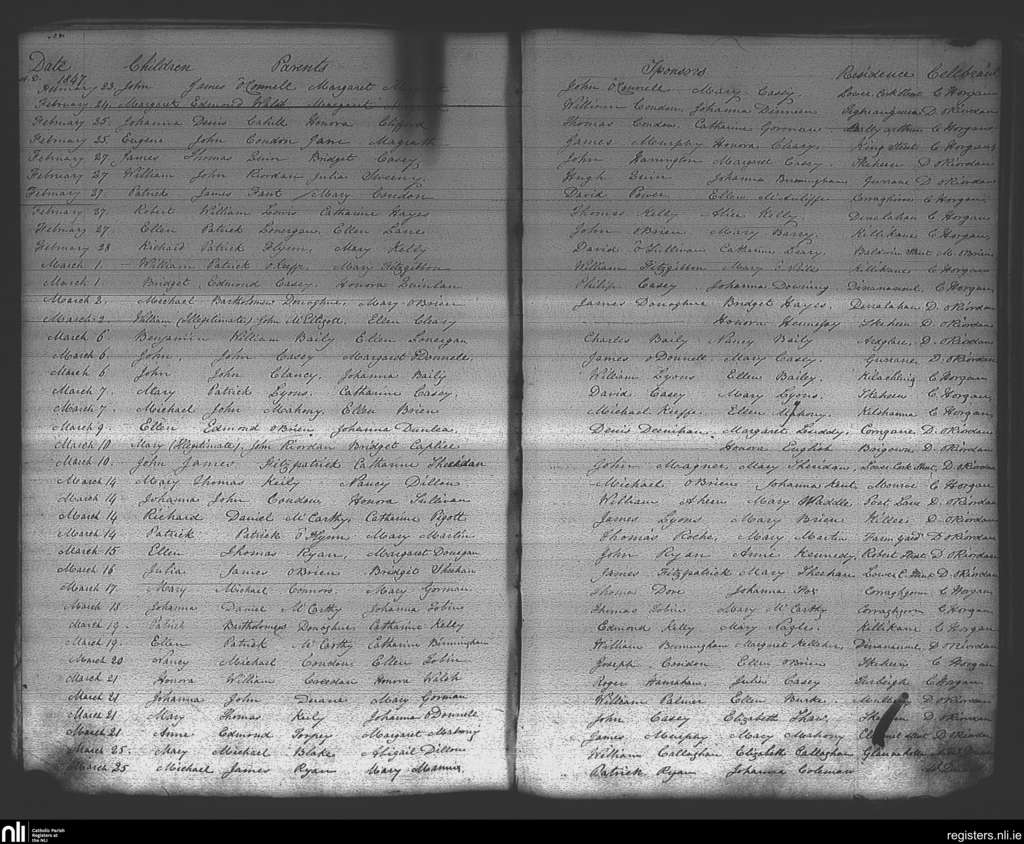 Date Children Parents Sponsors Residence
A.D. 1847
February 23. John James O'Connell Margaret John O'Connell Mary Casey Lower Cork Street C Horgan
February 24. Margaret Edmond Walsh Margaret William Condon Johanna Dinneen D. O'Riordan
February 25. Johanna Denis Cahill Honora Clifford Thomas Condon Catharine Gorman C Horgan
February 25. Eugene John Condon Jane Magrath James Murphy Honora Casey King Street C Horgan
February 27. James Thomas Bridget Casey John Harrington Margaret Casey Skeheen D O'Riordan
February 27 William John Riordan Julia Sweeny Hugh Johanna Birmingham Gurrane D O'Riordan
February 27. Patrick James Fant Mary Condon David Power Ellen McAuliffe Corraghine C Horgan
February 27. Robert William Lewis Catharine Hayes Thomas Kelly Alice Kelly C Horgan
February 27. Ellen Patrick Lonergan Ellen Lane John O'Brien Mary Barry Killikane C Horgan
February 28 Richard Patrick Flynn, Mary Kelly David O'Sullivan Catharine Leary Baldwin Street M. O'Brien
March 1. William Patrick O'Keeffe Mary Fitzgibbon William Fitzgibbon Mary O'Neill Killikane C Horgan
March 1 Bridget Edmond Casey Honora Quinlan Philip Casey Johanna C. Horgan
March 2. Michael Bartholomew Donoghue Mary O'Brien James Donoghue Bridget Hayes D. O'Riordan
March 2 William (Illegitimate) John Ellen Cleary Honora Hennessy Skeheen D. O'Riordan
March 6 Benjamin William Baily Ellen Lonergan Charles Baily Nancy Baily D. O'Riordan
March 6 John, John Casey Margaret O'Donnell James O'Donnell Mary Casey Gurrane D. O'Riordan
March 6 John John Clancy, Johanna Baily William Lyons Ellen Bailey C Horgan
March 7. Mary Patrick Lyons Catharine Casey David Casey Mary Lyons Skeheen C Horgan
March 7. Michael John Mahony Ellen Brien Michael Keeffe Ellen Mahony Kilshanna C Horgan
March 9. Ellen Edmond O'Brien Johanna Dunlea Denis Deenihan Margaret Liddy D. O'Riordan
March 10 Mary (Illegitimate) John Riordan Bridget Caplice Honora English D. O'Riordan
March 10. John James Fitzpatrick Catharine Sheridan John Magner Mary Sheridan Lower Cork Street D. O'Riordan
March 14 Mary Thomas Keily Nancy Dillon Michael O'Brien Johanna Kent Monroe C Horgan
March 14 Johanna John Condon Honora Sullivan William Ahern Mary D. O'Riordan
March 14 Richard Daniel McCarthy Catharine Pigott James Lyons Mary Brien D. O'Riordan
March 14 Patrick Patrick O'Flynn Mary Martin Thomas Roche Mary Martin D. O'Riordan
March 15 Ellen Thomas Ryan, Margaret Donegan John Ryan Anne Kennedy Robert Street D. O'Riordan
March 16 Julia James O'Brien Bridget Sheehan James Fitzpatrick Mary Sheehan Lower C. Street D O'Riordan
March 17 Mary Michael Connors Mary Gorman Thomas Dore Johanna Fox Corraghgorm C Horgan
March 18 Johanna Daniel McCarthy Johanna Tobin Thomas Tobin Mary McCarthy Corraghgorm C Horgan
March 19. Patrick Bartholomew Donoghue Catharine Kelly Edmond Kelly Mary Killikane C Horgan
March 19. Ellen Patrick McCarthy Catharine Birmingham William Birmingham Margaret Kelleher D O'Riordan
March 20 Nancy Michael Condon Ellen Tobin Joseph Condon Ellen O'Brien Skeheen C Horgan
March 21 Honora William Creedan Honora Walsh Roger Hanrahan Julia Casey C Horgan
March 21 Johanna John Mary Gorman William Palmer Ellen Burke D O'Riordan
March 21 Mary Thomas Keily Johanna O'Donnell John Casey Elizabeth Shaw Skeheen D O'Riordan
March 21 Anne Edmond Torpey Margaret Mahony James Murphy Mary Mahony D. O'Riordan
March 25. Mary Michael Blake Abigail Dillon William Callaghan Elizabeth Callaghan
March 25 Michael James Ryan Mary Mannix Patrick Ryan Johanna Coleman
nli Catholic Parish Registers at the NLI
registers.nli.ie